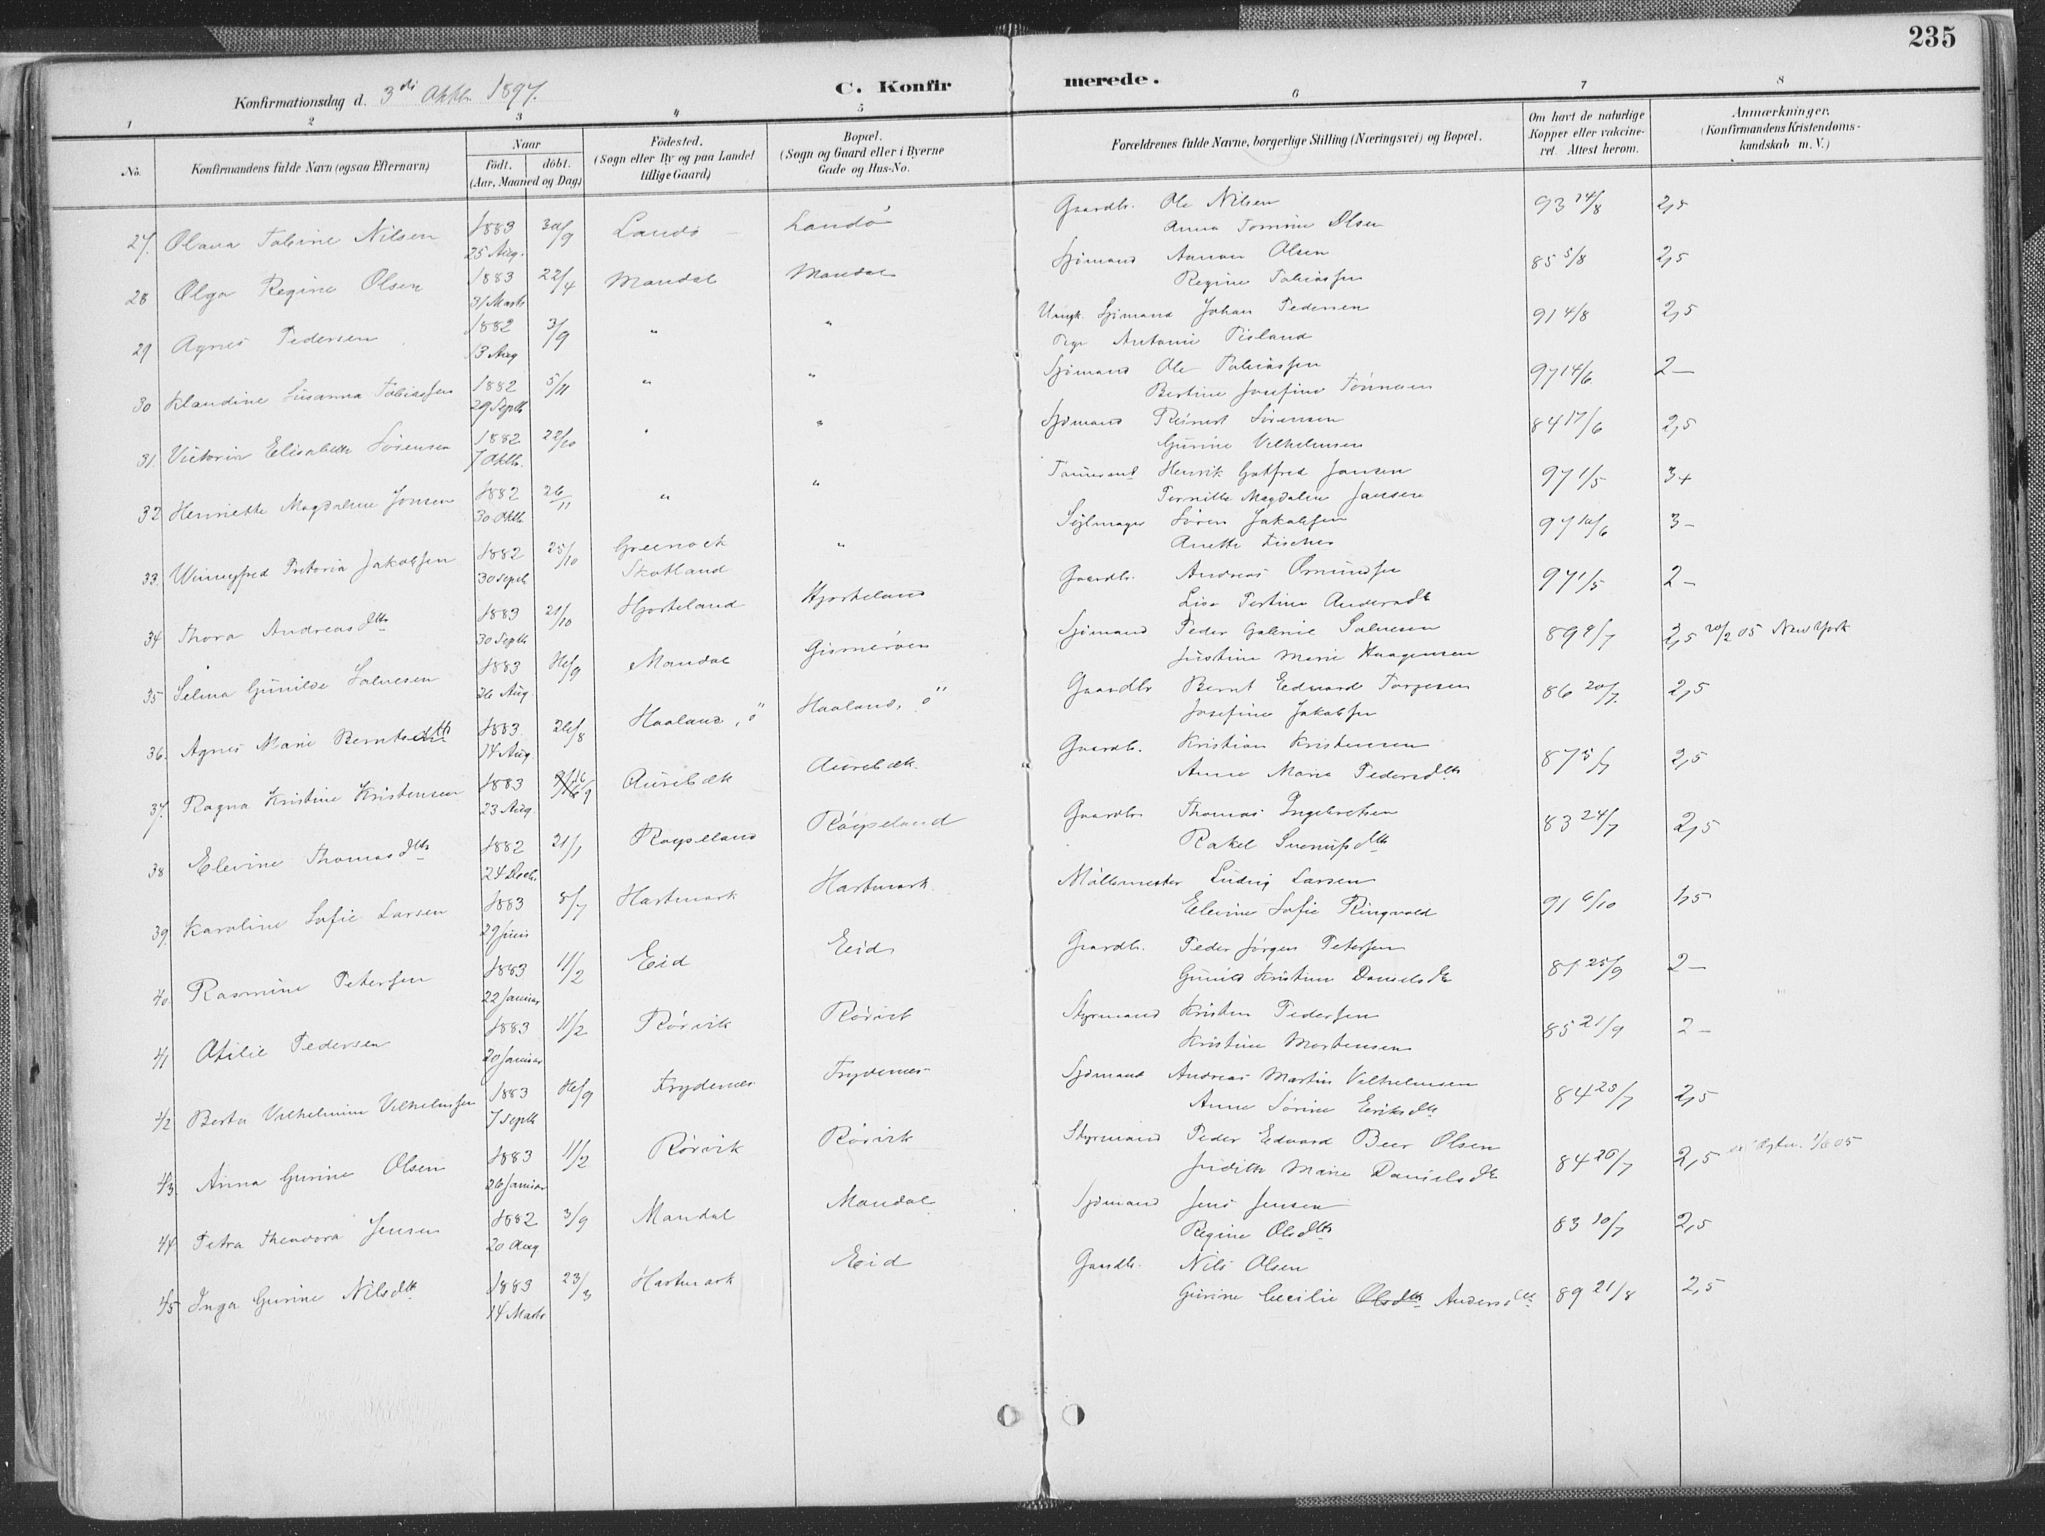 235
Konfirmationsdag d. 3die Oktbr. 1897.
C. Konfirmerede.
1 2 3 4 5 6 7 8
No.
Konfirmandens fulde Navn (ogsaa Efternavn)
Naar
födt. döbt.
(Aar, Maaned og Dag)
Födested.
(Sogn eller By og paa Landet
tillige Gaard)
Bopæl.
(Sogn og Gaard eller i Byerne
Gade og Hus-No.
Forældrenes fulde Navne, borgerlige Stilling (Næringsvei) og Bopæl.
Om havt de naturlige
Kopper eller vakcine-
ret. Attest herom.
Anmærkninger.
(Konfirmandens Kristendoms-
kundskab m. V.)
27. Olava Tobine Nilsen 1883 25 Aug. 30/9 Landö Landö Gaardb. Ole Nilsen 93 14/8 2,5
Anna Tomine Olsen
28 Olga Regine Olsen 1883 31 Marts 22/4 Mandal Mandal Sjömand Aanon Olsen 85 5/8 2,5
Regine Tobiassen
29 Agnes Pedersen 1882 13 Aug 3/9 " " Ungk. Sjömand Johan Pedersen 91 4/8 2,5
Pige Antonie Fisland
30 Klaudine Susanna Tobiassen 1882 29 Septb 5/11 " " Sjömand Ole Tobiassen 97 14/6 2-
Bertine Josefine Tönnesen
31. Victoria Elisabeth Sörensen 1882 7 Oktb. 22/10 " " Sjömand Reinert Sörensen 84 17/6 2,5
Gurine Vilhelmsen
32 Henriette Magdalene Jansen 1882 30 Oktb 26/11 " " Henrik Gotfred Jansen 97 1/5 3+
Pernille Magdalene Jansen
33. Winnyfred Pretoria Jakobsen 1882 30 Septb 25/10 Greenock Skotland " Sejlmager Sören Jakobsen 97 16/6 3-
Anette Fischer
34 Thora Andreasdtr 1883 30 Septb 21/10 Hjorteland Hjorteland Gaardb. Andreas Osmundsen 97 1/5 2-
Lise Pertine Andersdtr
35 Selma Gunilde Salvesen 1883 26 Aug. 16/9 Mandal Gismeröen Sjömand Peder Gabriel Salvesen 89 8/7 2,5 20/2 05 New York
Justine Marie Haagensen
36. Agnes Marie Berntsdtr 1883 14 Aug. 26/8 Haaland, ö Haaland, ö Gaardbr Bernt Edvard Torjesen 86 20/7. 2,5
Josefine Jakobsen
37. Ragna Kristine Kristensen 1883 23 Aug. 16/9 Aurebæk Aurebæk. Gaardb. Kristian Kristensen 87 5/7 2,5
Anne Marie Pedersdtr
38 Elevine Thomasdtr 1882 24 Decb. 21/1 Röyseland Röyseland Gaardbr Thomas Ingebretsen 83 24/7 2,5
Rakel Svenungsdtr
39. Karoline Sofie Larsen 1883 29 Juni 8/7 Hartmark Hartmark. Möllemester Ludvig Larsen 91 6/10 1,5
Elevine Sofie Ringvold
40. Rasmine Petersen 1883 22 Januar 11/2 Eid Eid Gaardb. Peder Jörgen Petersen 81 25/9 2-
Gunild Kristine Danielsdtr
41 Otilie Pedersen 1883 20 Januar 11/2 Rörvik Rörvik Styrmand Kristen Pedersen 85 21/9 2-
Kristine Mortensen
42 Berta Vilhelmine Vilhelmsen 1883 7 Septb 16/9 Frydenæs Frydenæs Sjömand Andreas Martin Vilhelmsen 84 23/7 2,5
Anne Sörine Eriksdtr
43. Anna Gurine Olsen 1883 26 Januar 11/2 Rörvik Rörvik Styrmand Peder Edvard Beer Olsen 84 20/7 2,5 1/6 05
Judith Marie Danielsdtr
44 Petra Theodora Jensen 1882 20 Aug 3/9 Mandal Mandal Sjömand Jens Jensen 83 10/7 2,5
Regine Olsdtr
45 Inga Gurine Nilsdtr 1883 14 Marts 23/3 Hartmark Eid Gaardb. Nils Olsen 89 21/8 2,5
Gurine Cecilie Olsdtr Andersdtr